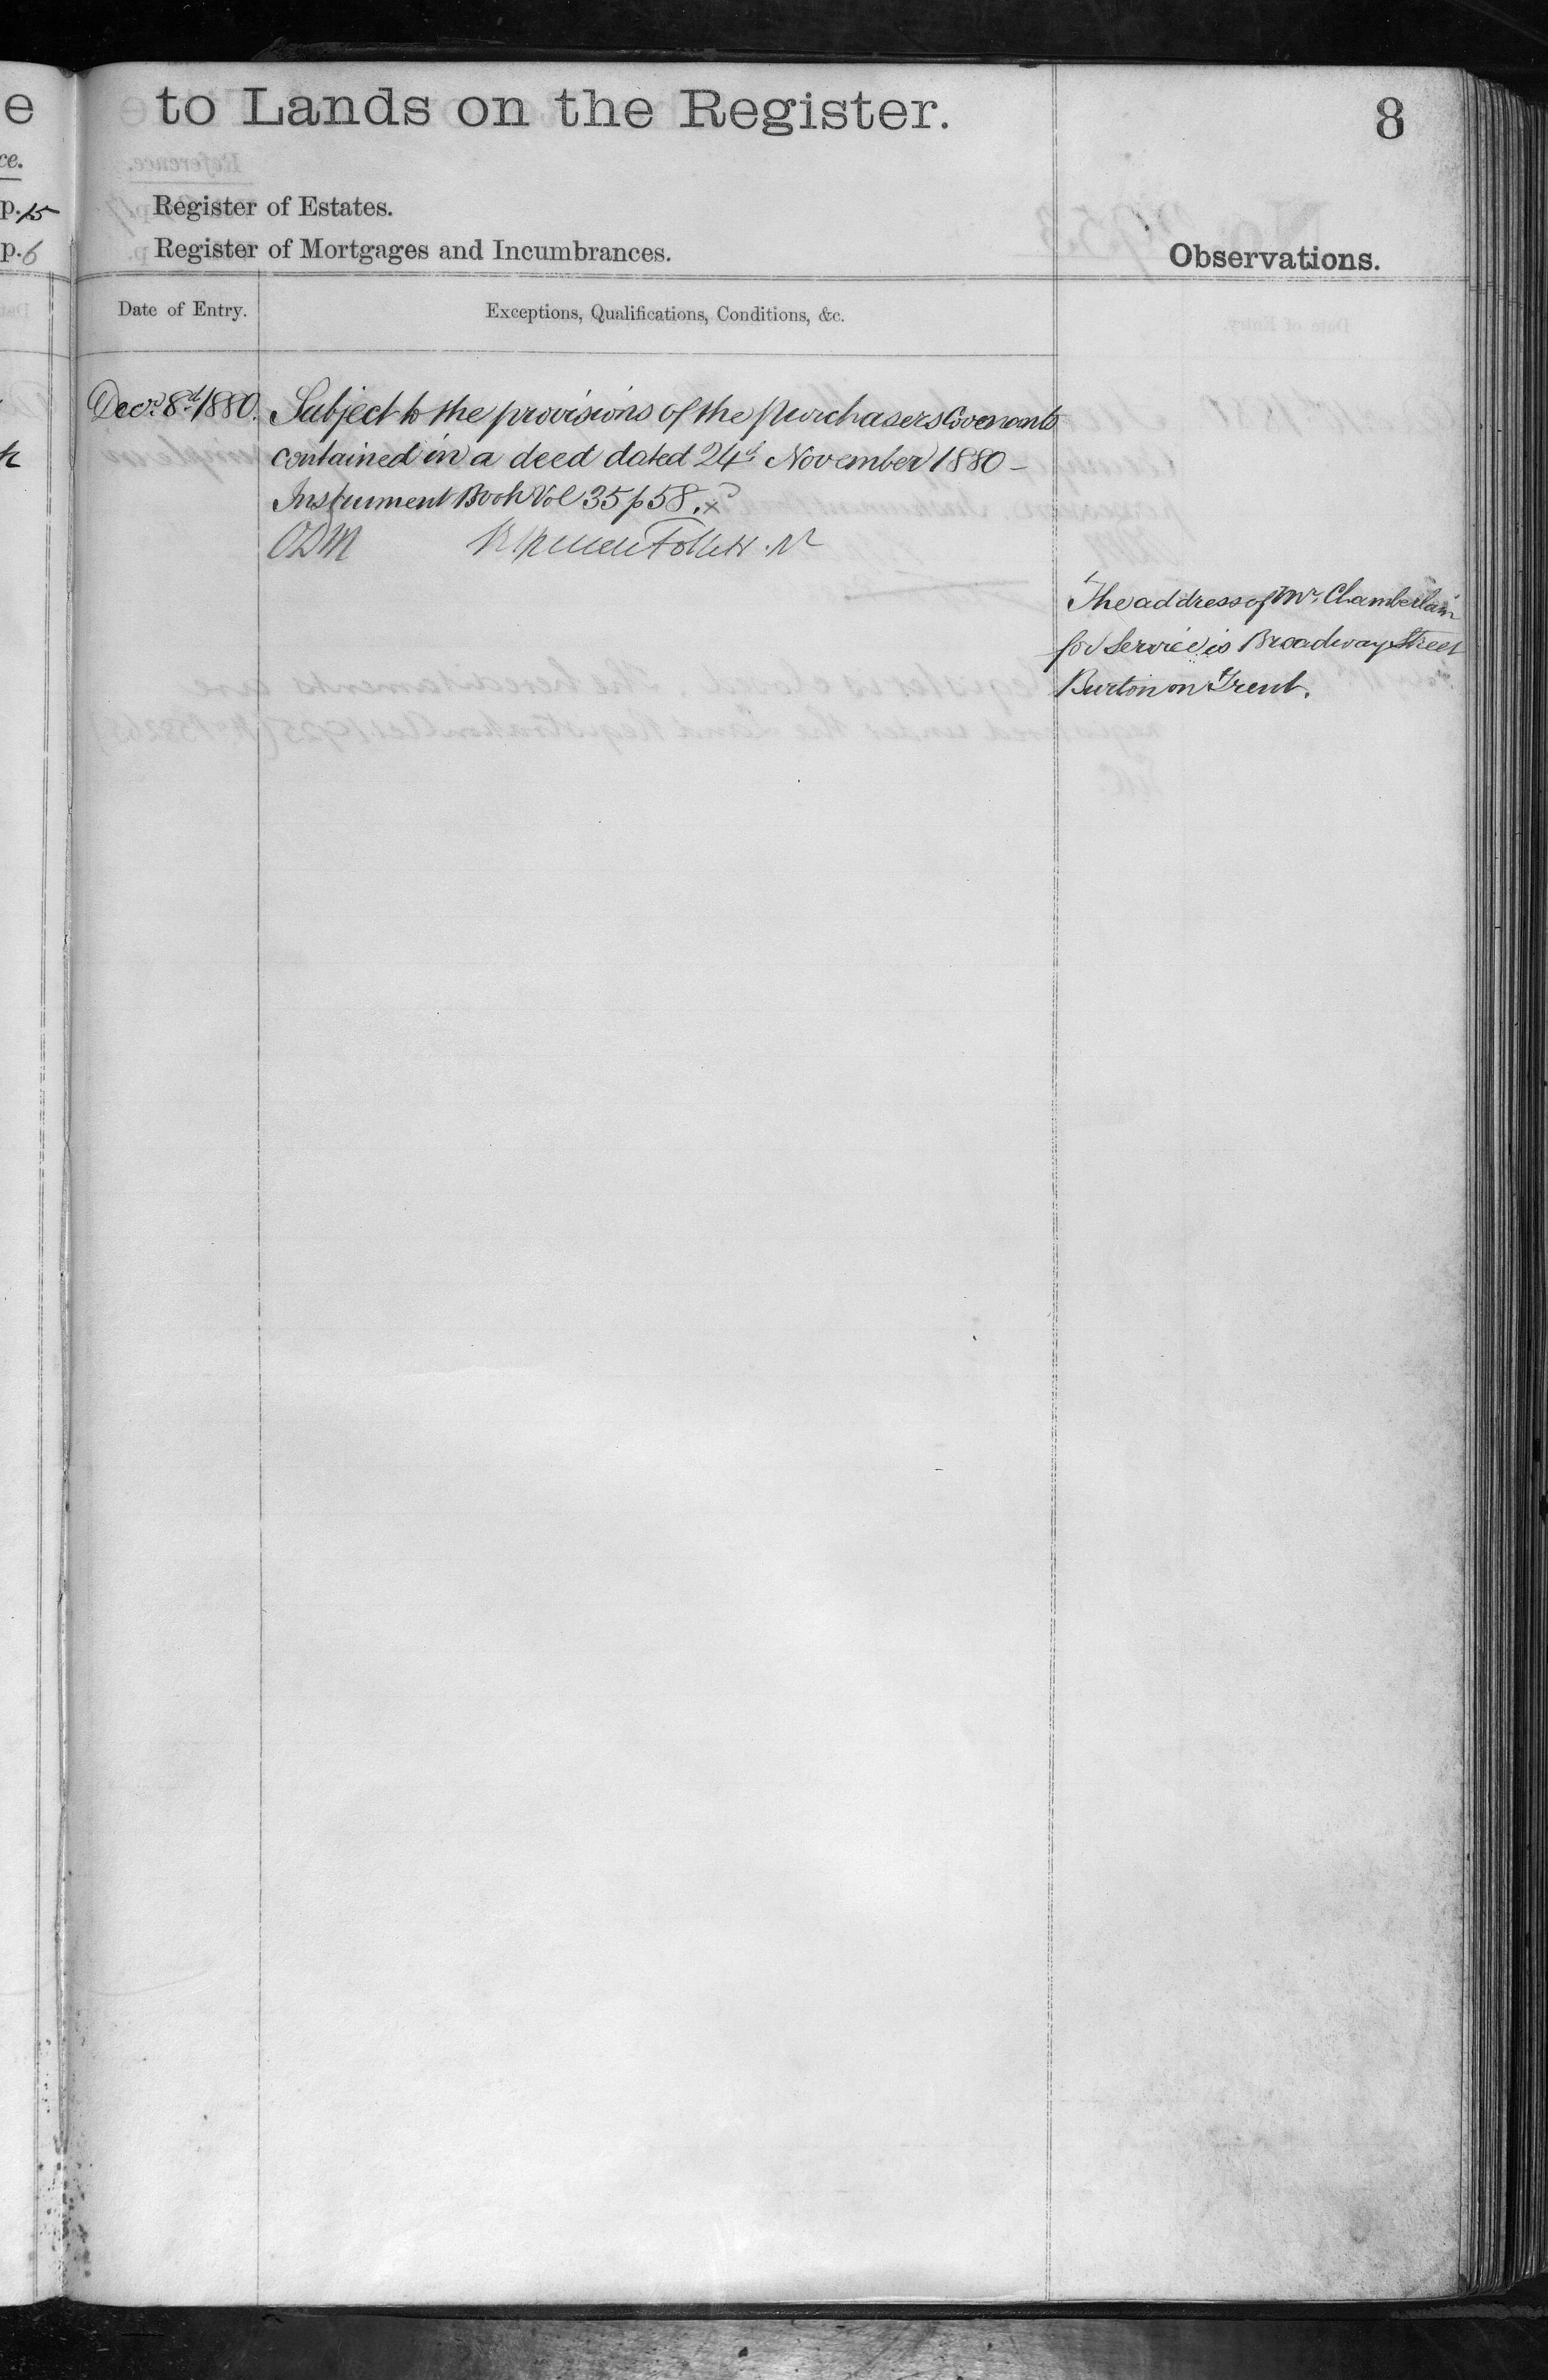 e
to Lands on the Register.
8
ce.
p. 15
Register of Estates.
p. 6
Register of Mortgages and Incumbrances.
Observations.
Date of Entry.
Exceptions, Qualifications, Conditions, &c.
Decr. 8th 1880.
Subject to the provisions of the purchasers Covenants
contained in a deed dated 24th November 1880 –
Instrument Book Vol 35 p 58. x
ODM
Follett
The address of Mr. Chamberlain
for Service is Broadway Street
Burton on Trent.